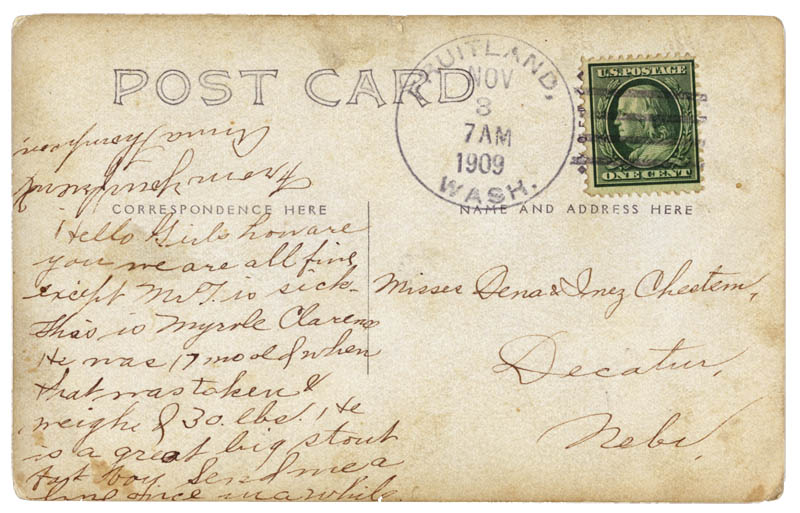 POST CARD
FRUITLAND,
NOV
8
7AM
1909
WASH.
U.S. POSTAGE
ONE CENT
CORRESPONDENCE HERE
NAME AND ADDRESS HERE
Hello Girls how are
you we are all fine
except Mr T. is sick
This is Myrvle Clarence
He was 17 mo old when
that was taken &
weighed 30. lbs. He
is a great big stout
fat boy Send me a
line once in a while
From your friend
Anna
Misses Dena & Inez Chestem,
Decatur,
Nebr.